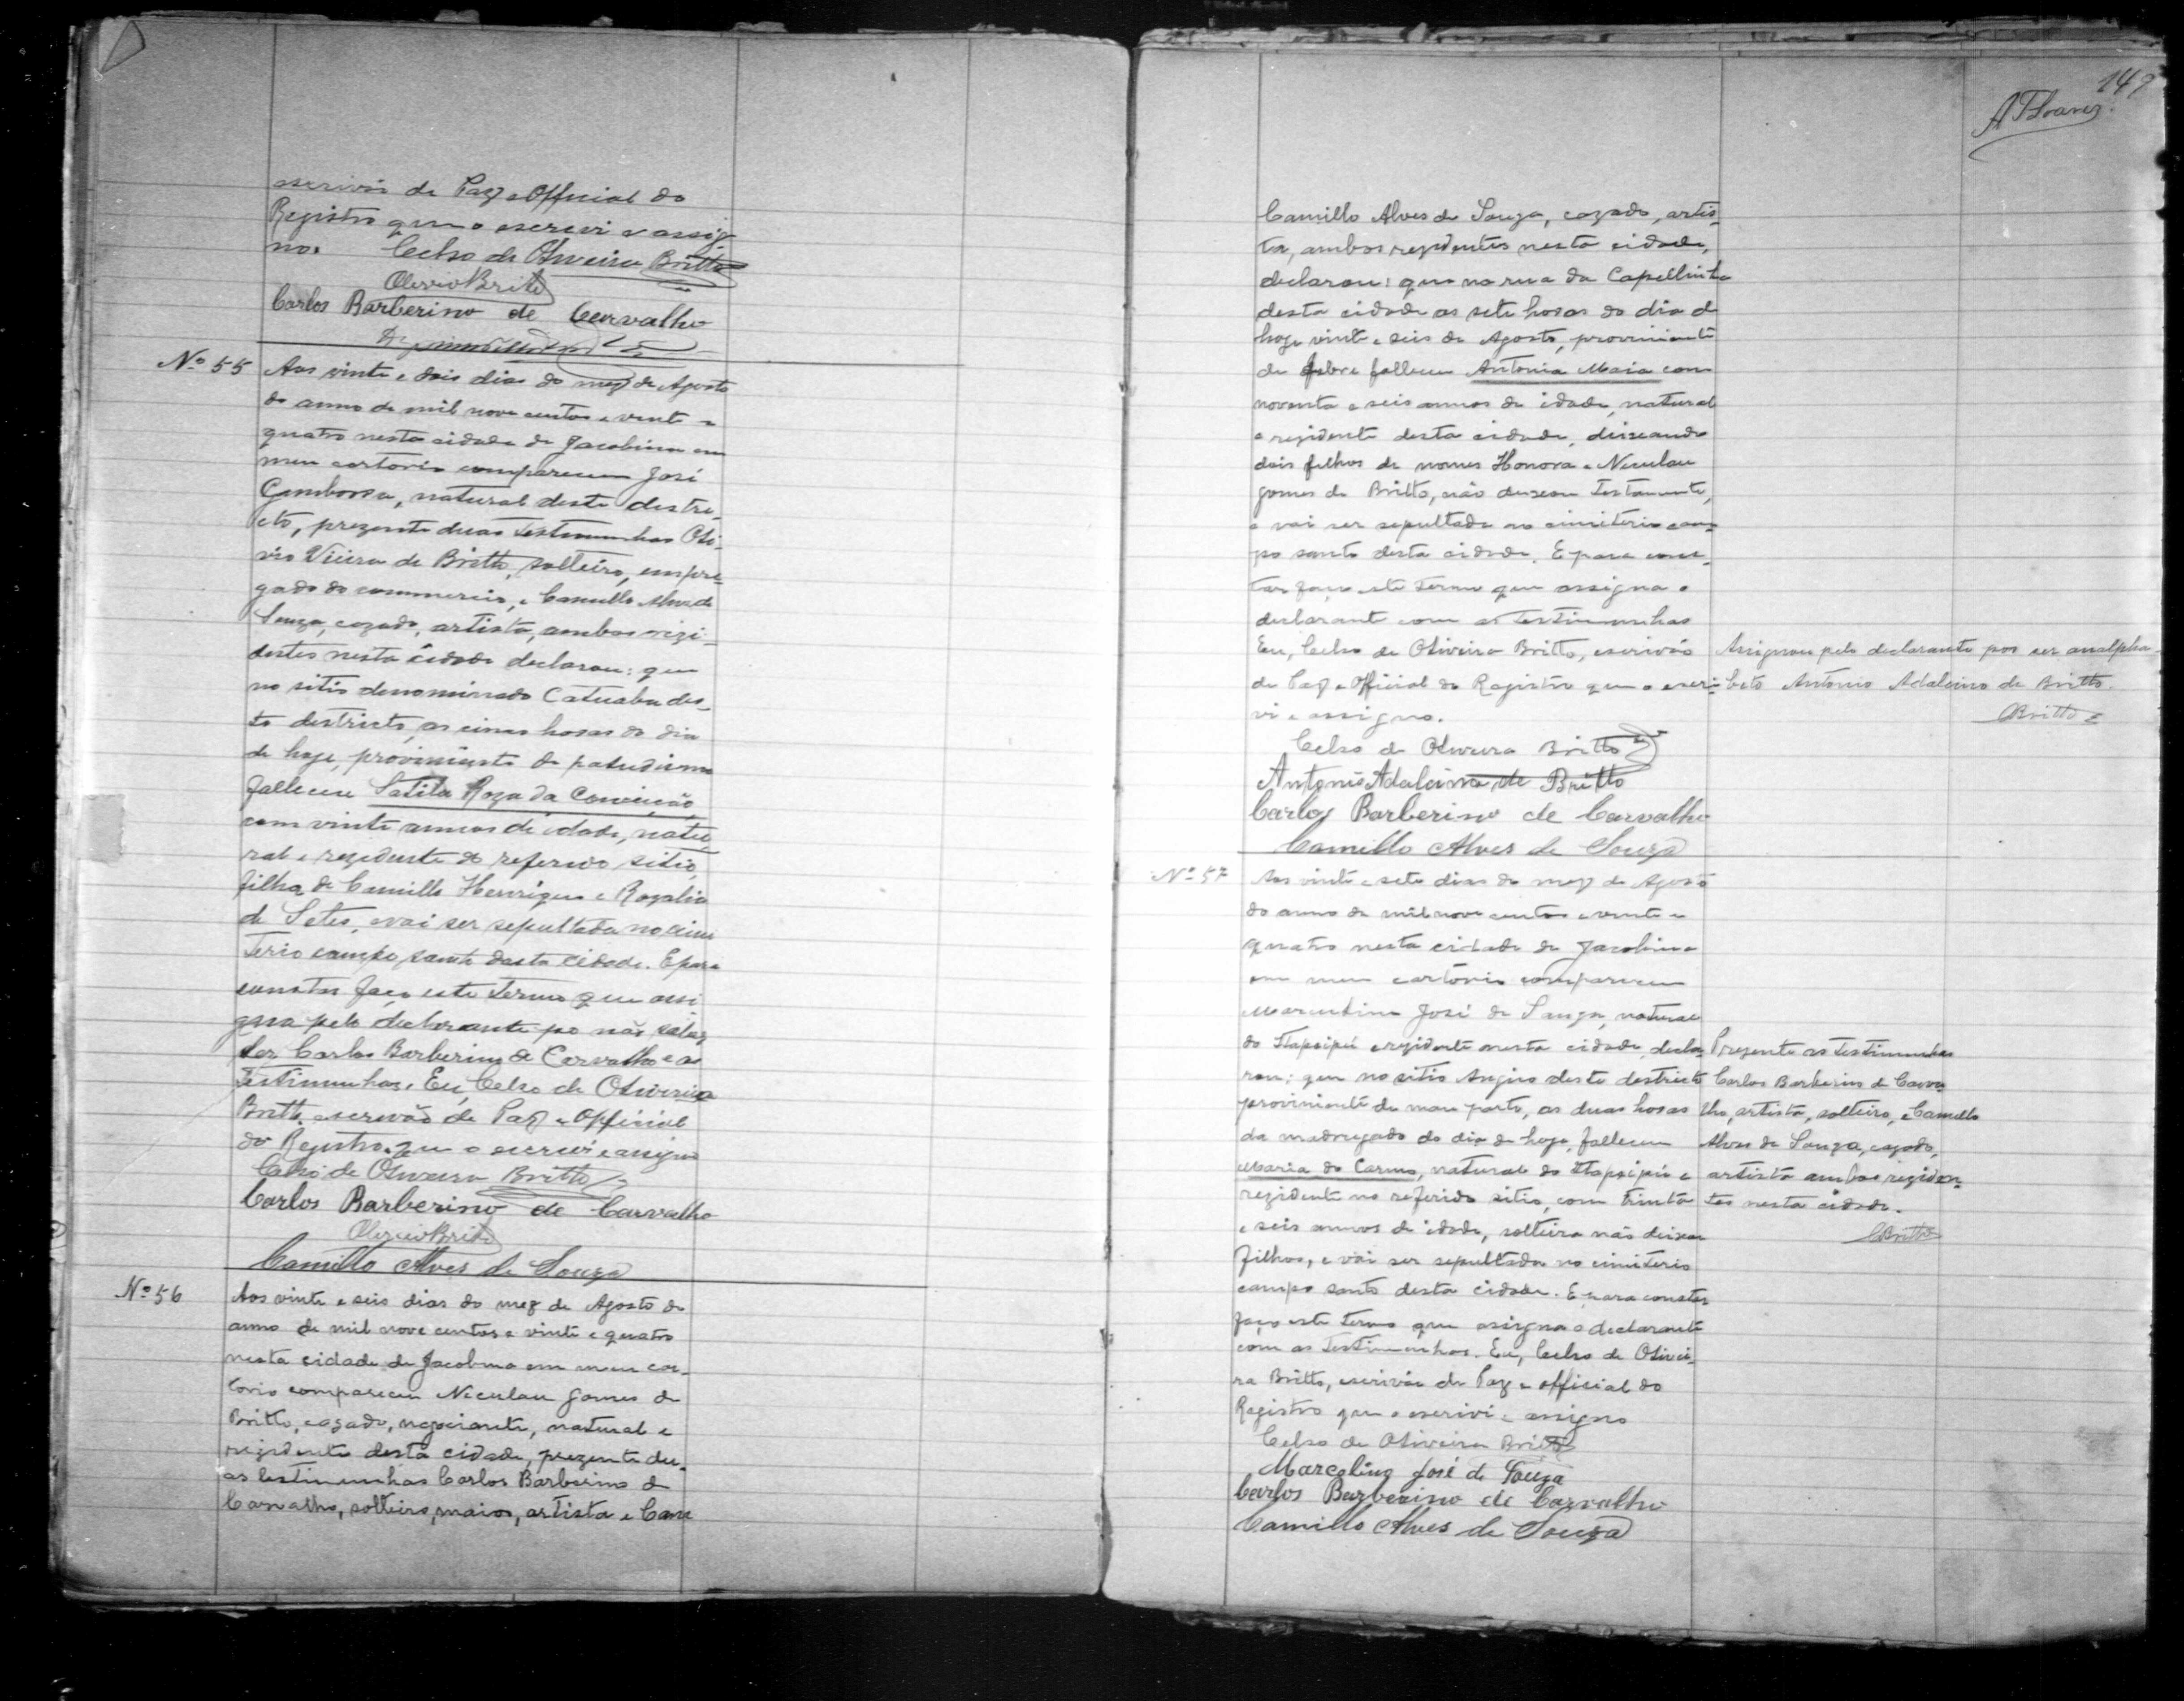 escrivão de Paz e Official do
Registro que o escrevi e assig-
no. Celso de Oliveira Britto
Olivio Brito
Carlos Barberino de Carvalho
Nº 55
Aos vinte e dois dias do mez de Agosto
do anno de mil nove centos e vinte e
quatro nesta cidade de Jacobina em
meu cartorio compareceu José
natural deste destri-
cto, prezente duas testemunhas Oli-
vio Vieira de Britto, solteiro, empre-
gado do commercio, e Camillo Alves de
Souza, cazado, artista, ambos rezi-
dentes nesta cidade declarou: que
no sitio denominado Catuaba des-
te destricto, as cinco horas do dia
de hoje, proviniente de paludismo
falleceu Satila Roza da Conceição,
com vinte annos de idade, natu-
ral e rezidente do referido sitio,
filha de Camillo Henrique e Rozalia
de Setes, e vai ser sepultada no cimi
terio campo santo desta cidade. E para
constar faço este termo que assi
gna pelo declarante po não saber
ler Carlos Barberino de Carvalho e as
testimunhas, Eu, Celso de Oliveira
Britto escrivão de Paz e Official
do Registro que o escrevi e assigno
Celso de Oliveira Britto
Carlos Barberino de Carvalho
Olivio Brito
Camillo Alves de Souza
Nº 56
Aos vinte e seis dias do mez de Agosto do
anno de mil nove centos e vinte e quatro
nesta cidade de Jacobina em meu car-
torio compareceu Niculau Gomes de
Britto, cazado, negociante, natural e
rezidente desta cidade, prezente du-
as testimunhas Carlos Barberino de
Carvalho, solteiro, maior, artista e Cam
149
Camillo Alves de Souza, cazado, artis-
ta, ambos rezidentes nesta cidade,
declarou: que na rua da Capellinha
desta cidade as sete horas do dia de
hoje vinte e seis de Agosto, proviniente
de febre falleceu Antonia Maia com
noventa e seis annos de idade, natural
e rezidente desta cidade, deixando
dois filhos de nomes Honora e Niculau
gomes de Britto, não deixou testamento,
e vai ser sepultada no cimiterio cam-
po santo desta cidade. E para cons-
tar faço este termo que assigna o
declarante com as testimunhas
Eu, Celso de Oliveira Britto, escrivão
de Paz e Official do Registro que o escri-
vi e assigno.
Assignou pelo declarante por ser analpha-
beto Antonio Adalcino de Britto.
CBritto
Celso de Oliveira Britto
Antonio Adalcino de Britto
Carlos Barberino de Carvalho
Camillo Alves de Souza
Nº 57
Aos vinte e sete dias do mez de Agosto
do anno de mil nove centos e vinte e
quatro nesta cidade de Jacobina
em meu cartorio compareceu
Marculino José de Souza, natural
do Itapeipú e rezidente nesta cidade, decla-
rou: que no sitio Angico deste destricto
proviniente de mau parto, as duas horas
da madrugada do dia de hoje, falleceu
Maria do Carmo, natural do Itapeipú e
rezidente no referido sitio, com trinta
e seis annos de idade, solteira não deixou
filhos, e vai ser sepultada no cimiterio
campo santo desta cidade. E para constar
faço este termo que assigna o declarante
com as testimunhas. Eu, Celso de Olivei-
ra Britto, escrivão de Paz e official do
Registro que o escrivi e assigno
Prezente as testimunhas
Carlos Barberino de Carva-
lho, artista, solteiro, e Camillo
Alves de Souza, cazado,
artista ambos reziden-
tes nesta cidade.
CBritto
Celso de Oliveira Britto
Marcolino José de Souza
Carlos Barberino de Carvalho
Camillo Alves de Souza